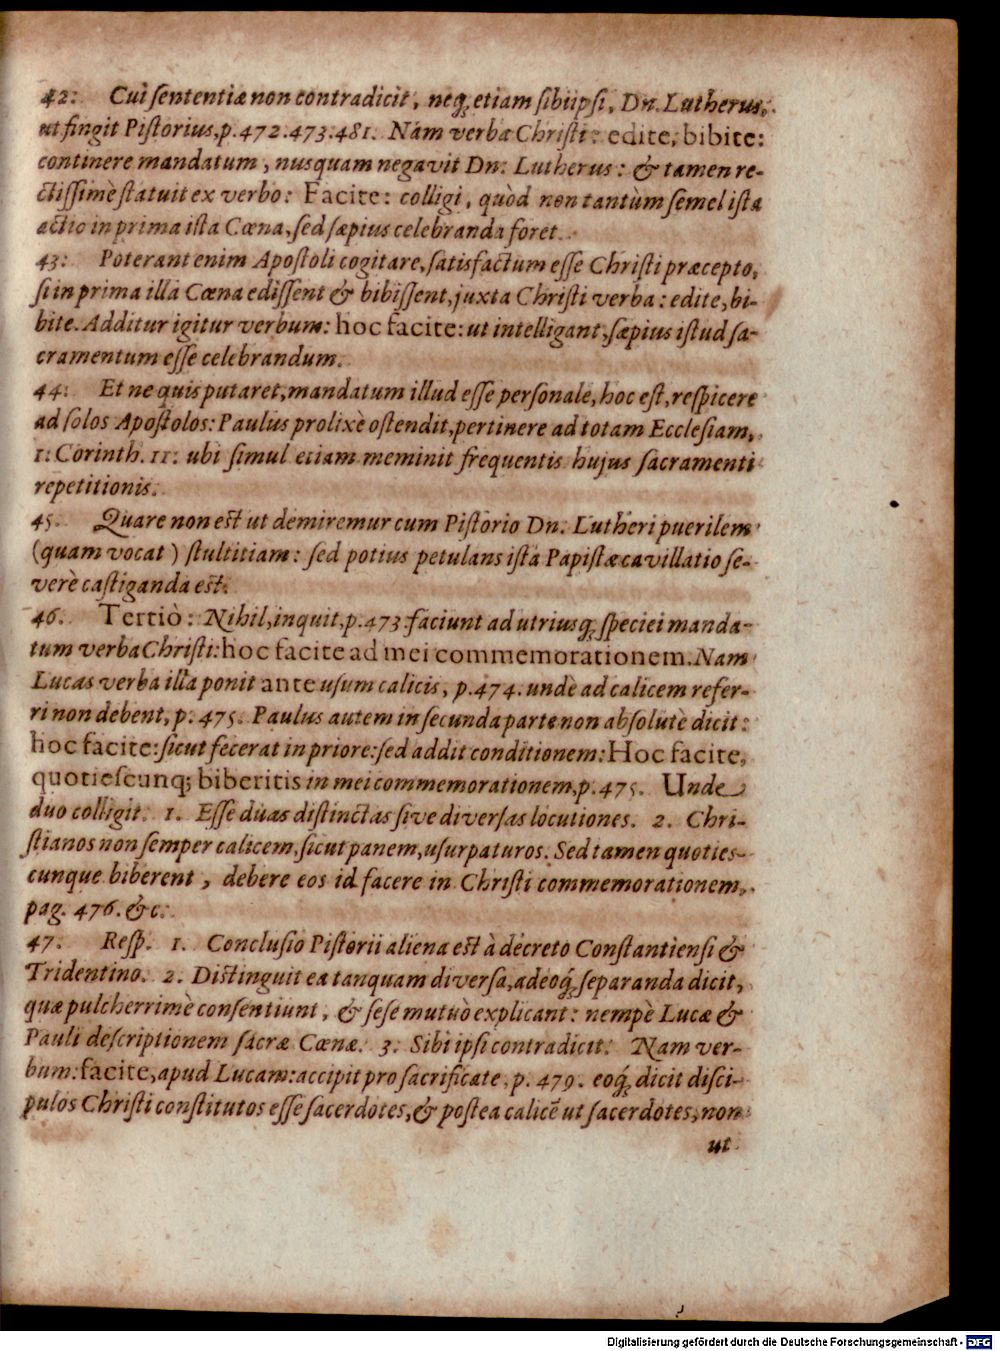 42. Cui sententiæ non contradicit, neq́; etiam sibiipsi, Dn. Lutherus,
ut fingit Pistorius, p. 472. 473. 481. Nam verba Christi: edite, bibite:
continere mandatum, nusquam negavit Dn. Lutherus: & tamen re-
ctissimè statuit ex verbo: Facite: colligi, quòd non tantùm semel ista
actio in prima ista Cœna, sed sæpius celebranda foret.
43. Poterant enim Apostoli cogitare, satisfactum esse Christi præcepto,
si in prima illa Cœna edissent & bibissent, juxta Christi verba: edite, bi-
bite. Additur igitur verbum: hoc facite: ut intelligant, sæpius istud sa-
cramentum esse celebrandum.
44. Et ne quis putaret, mandatum illud esse personale, hoc est, respicere
ad solos Apostolos: Paulus prolixè ostendit, pertinere ad totam Ecclesiam,
1. Corinth. 11. ubi simul etiam meminit frequentis hujus sacramenti
repetitionis.
45. Quare non est ut demiremur cum Pistorio Dn. Lutheri puerilem
(quam vocat) stultitiam: sed potius petulans ista Papistæ cavillatio se-
verè castiganda est.
46. Tertiò: Nihil, inquit, p. 473. faciunt ad utriusq́; speciei manda-
tum verba Christi: hoc facite ad mei commemorationem. Nam
Lucas verba illa ponit ante usum calicis, p. 474. unde ad calicem refer-
ri non debent, p. 475. Paulus autem in secunda parte non absolutè dicit:
hoc facite: sicut fecerat in priore: sed addit conditionem: Hoc facite,
quotiescunq; biberitis in mei commemorationem, p. 475. Unde
duo colligit. 1. Esse duas distinctas sive diversas locutiones. 2. Chri-
stianos non semper calicem, sicut panem, usurpaturos. Sed tamen quoties-
cunque biberent, debere eos id facere in Christi commemorationem,
pag. 476. &c.
47. Resp. 1. Conclusio Pistorii aliena est à decreto Constantiensi &
Tridentino. 2. Distinguit ea tanquam diversa, adeoq́; separanda dicit,
quæ pulcherrimè consentiunt, & sese mutuò explicant: nempè Lucæ &
Pauli descriptionem sacræ Cœnæ. 3. Sibi ipsi contradicit. Nam ver-
bum: facite, apud Lucam: accipit pro sacrificate, p. 479. eoq́; dicit disci-
pulos Christi constitutos esse sacerdotes, & postea calicē ut sacerdotes, non
ut
Digitalisierung gefördert durch die Deutsche Forschungsgemeinschaft - DFG